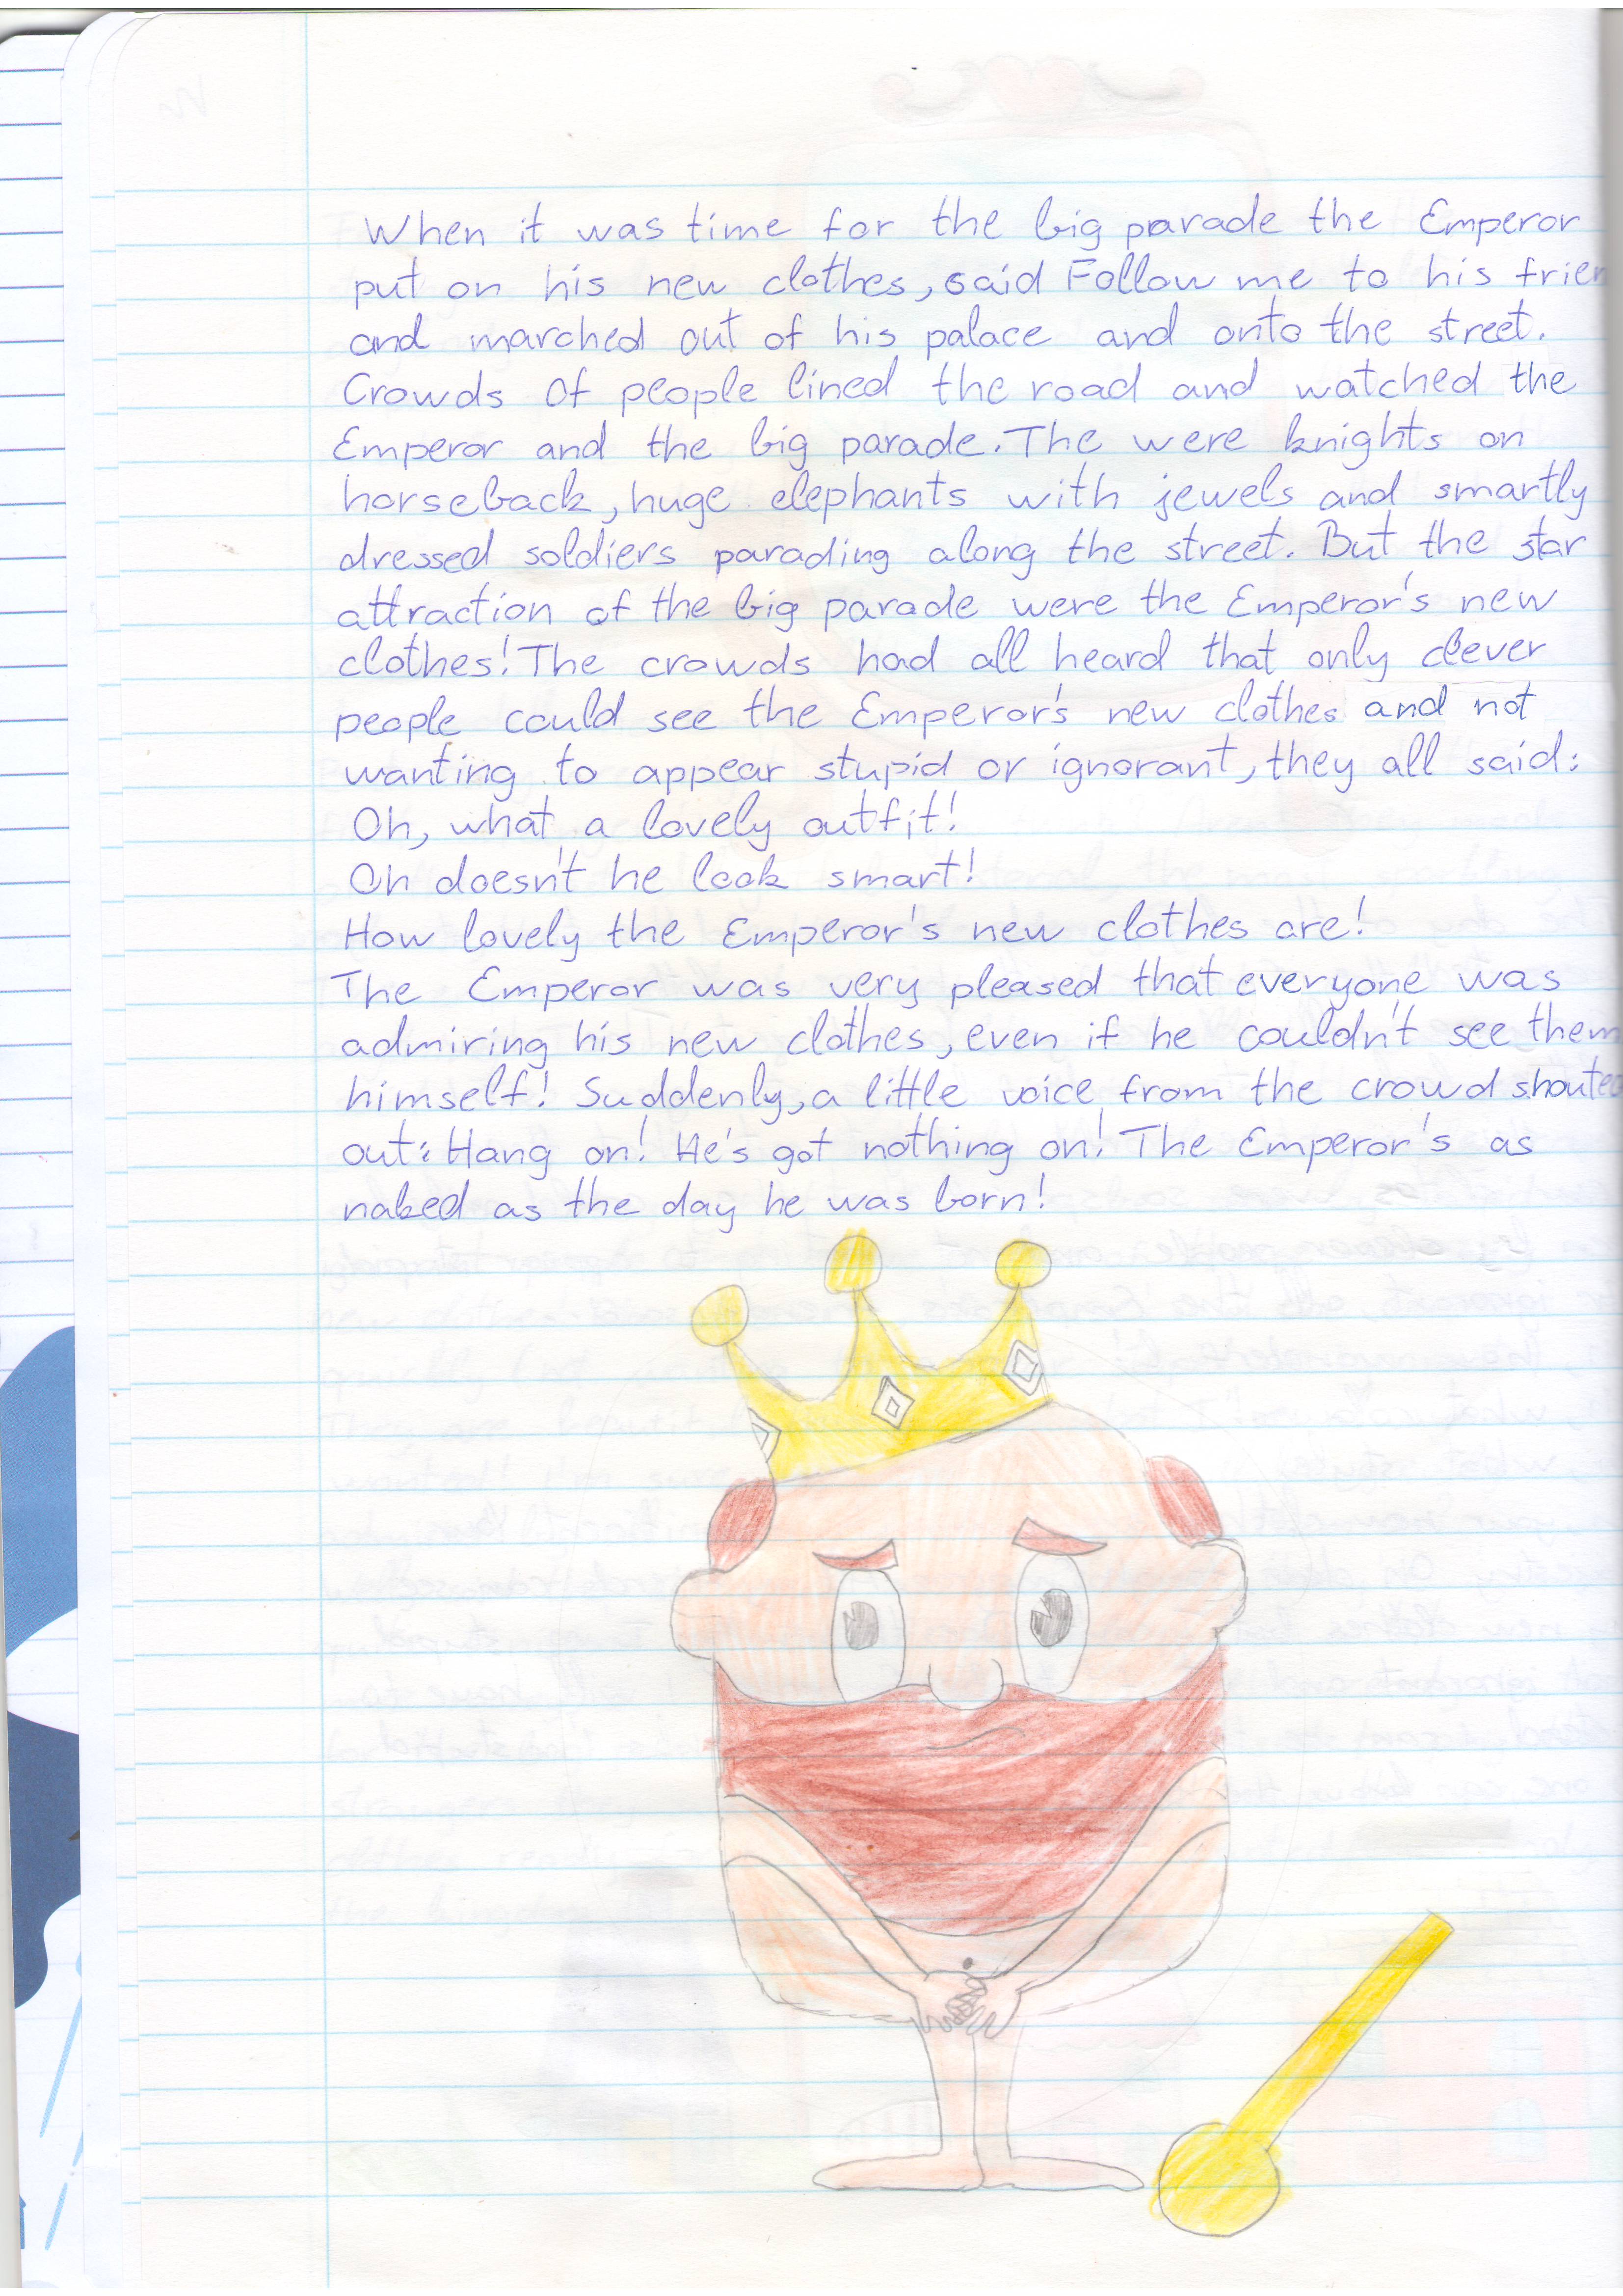 When it was time for the big parade the Emperor
put on his new clothes, said Follow me to his frien
and marched out of his palace and onto the street.
Crowds of people lined the road and watched the
Emperor and the big parade. The were knights on
horseback, huge elephants with jewels and smartly
dressed soldiers parading along the street. But the star
attraction of the big parade were the Emperor's new
clothes! The crowds had all heard that only clever
people could see the Emperor's new clothes and not
wanting to appear stupid or ignorant, they all said:
Oh, what a lovely outfit!
Oh doesn't he look smart!
How lovely the Emperor's new clothes are!
The Emperor was very pleased that everyone was
admiring his new clothes, even if he couldn't see them
himself! Suddenly, a little voice from the crowd shouted
out: Hang on! He's got nothing on! The Emperor's as
naked as the day he was born!